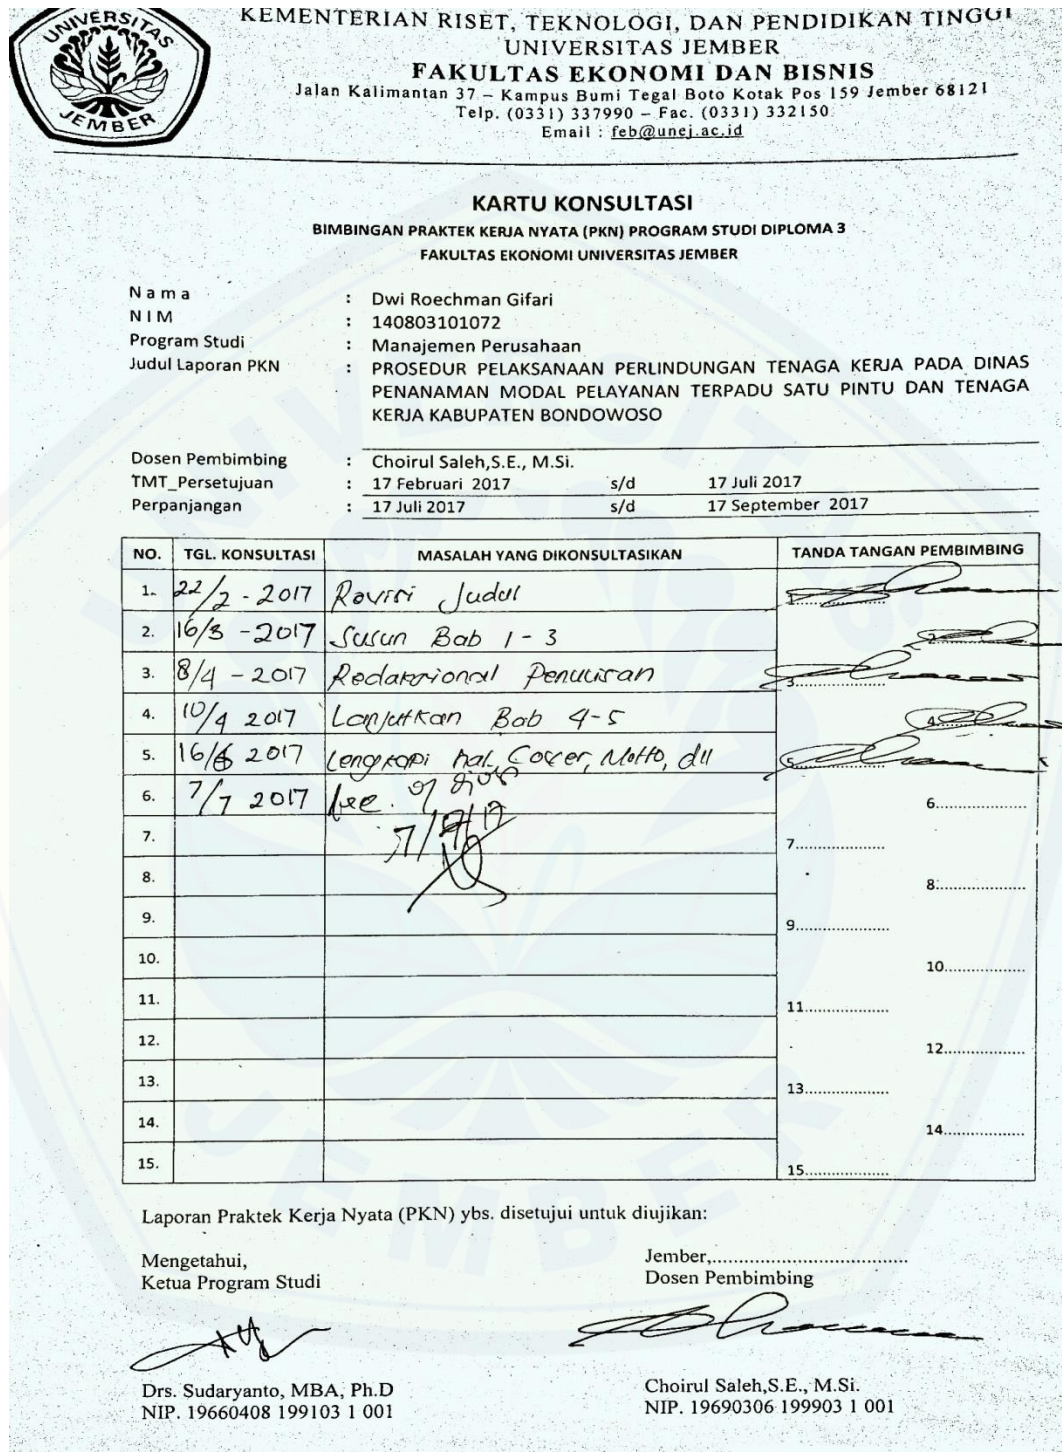 UNIVERSITAS
JEMBER
KEMENTERIAN RISET, TEKNOLOGI, DAN PENDIDIKAN TINGGI
UNIVERSITAS JEMBER
FAKULTAS EKONOMI DAN BISNIS
Jalan Kalimantan 37 – Kampus Bumi Tegal Boto Kotak Pos 159 Jember 68121
Telp. (0331) 337990 – Fac. (0331) 332150
Email : feb@unej.ac.id
KARTU KONSULTASI
BIMBINGAN PRAKTEK KERJA NYATA (PKN) PROGRAM STUDI DIPLOMA 3
FAKULTAS EKONOMI UNIVERSITAS JEMBER
N a m a : Dwi Roechman Gifari
N I M : 140803101072
Program Studi : Manajemen Perusahaan
Judul Laporan PKN : PROSEDUR PELAKSANAAN PERLINDUNGAN TENAGA KERJA PADA DINAS
PENANAMAN MODAL PELAYANAN TERPADU SATU PINTU DAN TENAGA
KERJA KABUPATEN BONDOWOSO
Dosen Pembimbing : Choirul Saleh,S.E., M.Si.
TMT_Persetujuan : 17 Februari 2017 s/d 17 Juli 2017
Perpanjangan : 17 Juli 2017 s/d 17 September 2017
NO. TGL. KONSULTASI MASALAH YANG DIKONSULTASIKAN TANDA TANGAN PEMBIMBING
1. 22/2 - 2017 Revisi Judul 1..................
2. 16/3 - 2017 Susun Bab 1 - 3 2.
3. 8/4 - 2017 Redaksional Penulisan 3..................
4. 10/4 2017 Lanjutkan Bab 4-5 4.
5. 16/6 2017 Lengkapi hal. Cover, Motto, dll 5..................
6. 7/7 2017 6..................
7. 7..................
8. 8..................
9. 9..................
10. 10..................
11. 11..................
12. 12..................
13. 13..................
14. 14..................
15. 15..................
Laporan Praktek Kerja Nyata (PKN) ybs. disetujui untuk diujikan:
Mengetahui,
Ketua Program Studi
Jember,.....................................
Dosen Pembimbing
Drs. Sudaryanto, MBA, Ph.D
NIP. 19660408 199103 1 001
Choirul Saleh,S.E., M.Si.
NIP. 19690306 199903 1 001
UNIVERSITAS
JEMBER